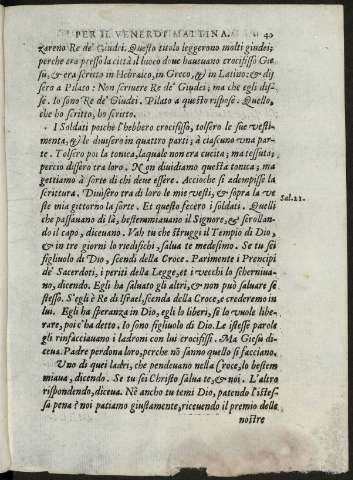 PER IL VENERDI MATTINA. 40
zareno Re de' Giudei. Questo titolo leggerono molti giudei;
perche era presso la città il luoco doue haueuano crocifisso Gie
sù, & era scritto in Hebraico, in Greco, & in Latino: & dis
sero a Pilato: Non scriuere Re de' Giudei; ma che egli dis-
se. Io sono Re de' Giudei. Pilato a questo rispose. Quello,
che ho scritto, ho scritto.
I Soldati poiche l'hebbero crocifisso, tolsero le sue vesti-
menta, & le diuisero in quattro parti; à ciascuno vna par-
te. Tolsero poi la tonica, laquale non era cucita; ma tessuta;
percio dissero tra loro. Non diuidiamo questa tonica; ma
gettiamo à sorte di chi dene essere. Accioche si adempisse la
scrittura. Diuisero tra di loro le mie vesti, & sopra la ve
ste mia gittorno la sorte. Et questo fecero i soldati. Quelli
Sal. 21.
che passauano di là, bestemmiauano il Signore, & scrollan-
do il capo, diceuano. Vah tu che struggi il Tempio di Dio,
& in tre giorni lo riedifichi, salua te medesimo. Se tu sei
figliuolo di Dio, scendi della Croce. Parimente i Principi
de' Sacerdoti, i periti della Legge, et i vecchi lo scherniua-
no, dicendo. Egli ha saluato gli altri, & non può saluare se
stesso. S'egli è Re di Israel, scenda della Croce, e crederemo in
lui. Egli ha speranza in Dio, egli lo liberi, se lo vuole libe-
rare, poi c'ha detto. Io sono figliuolo di Dio. Le istesse parole
gli rinfacciauano i ladroni con lui crocifissi. Ma Giesù di-
ceua. Padre perdona loro, perche nō sanno quello si facciano.
Uno di quei ladri, che pendeuano nella Croce, lo bestem
miaua, dicendo. Se tu sei Christo salua te, & noi. L'altro
rispondendo, diceua. Nè ancho tu temi Dio, patendo l'istes-
sa pena? noi patiamo giustamente, riceuendo il premio delle
nostre